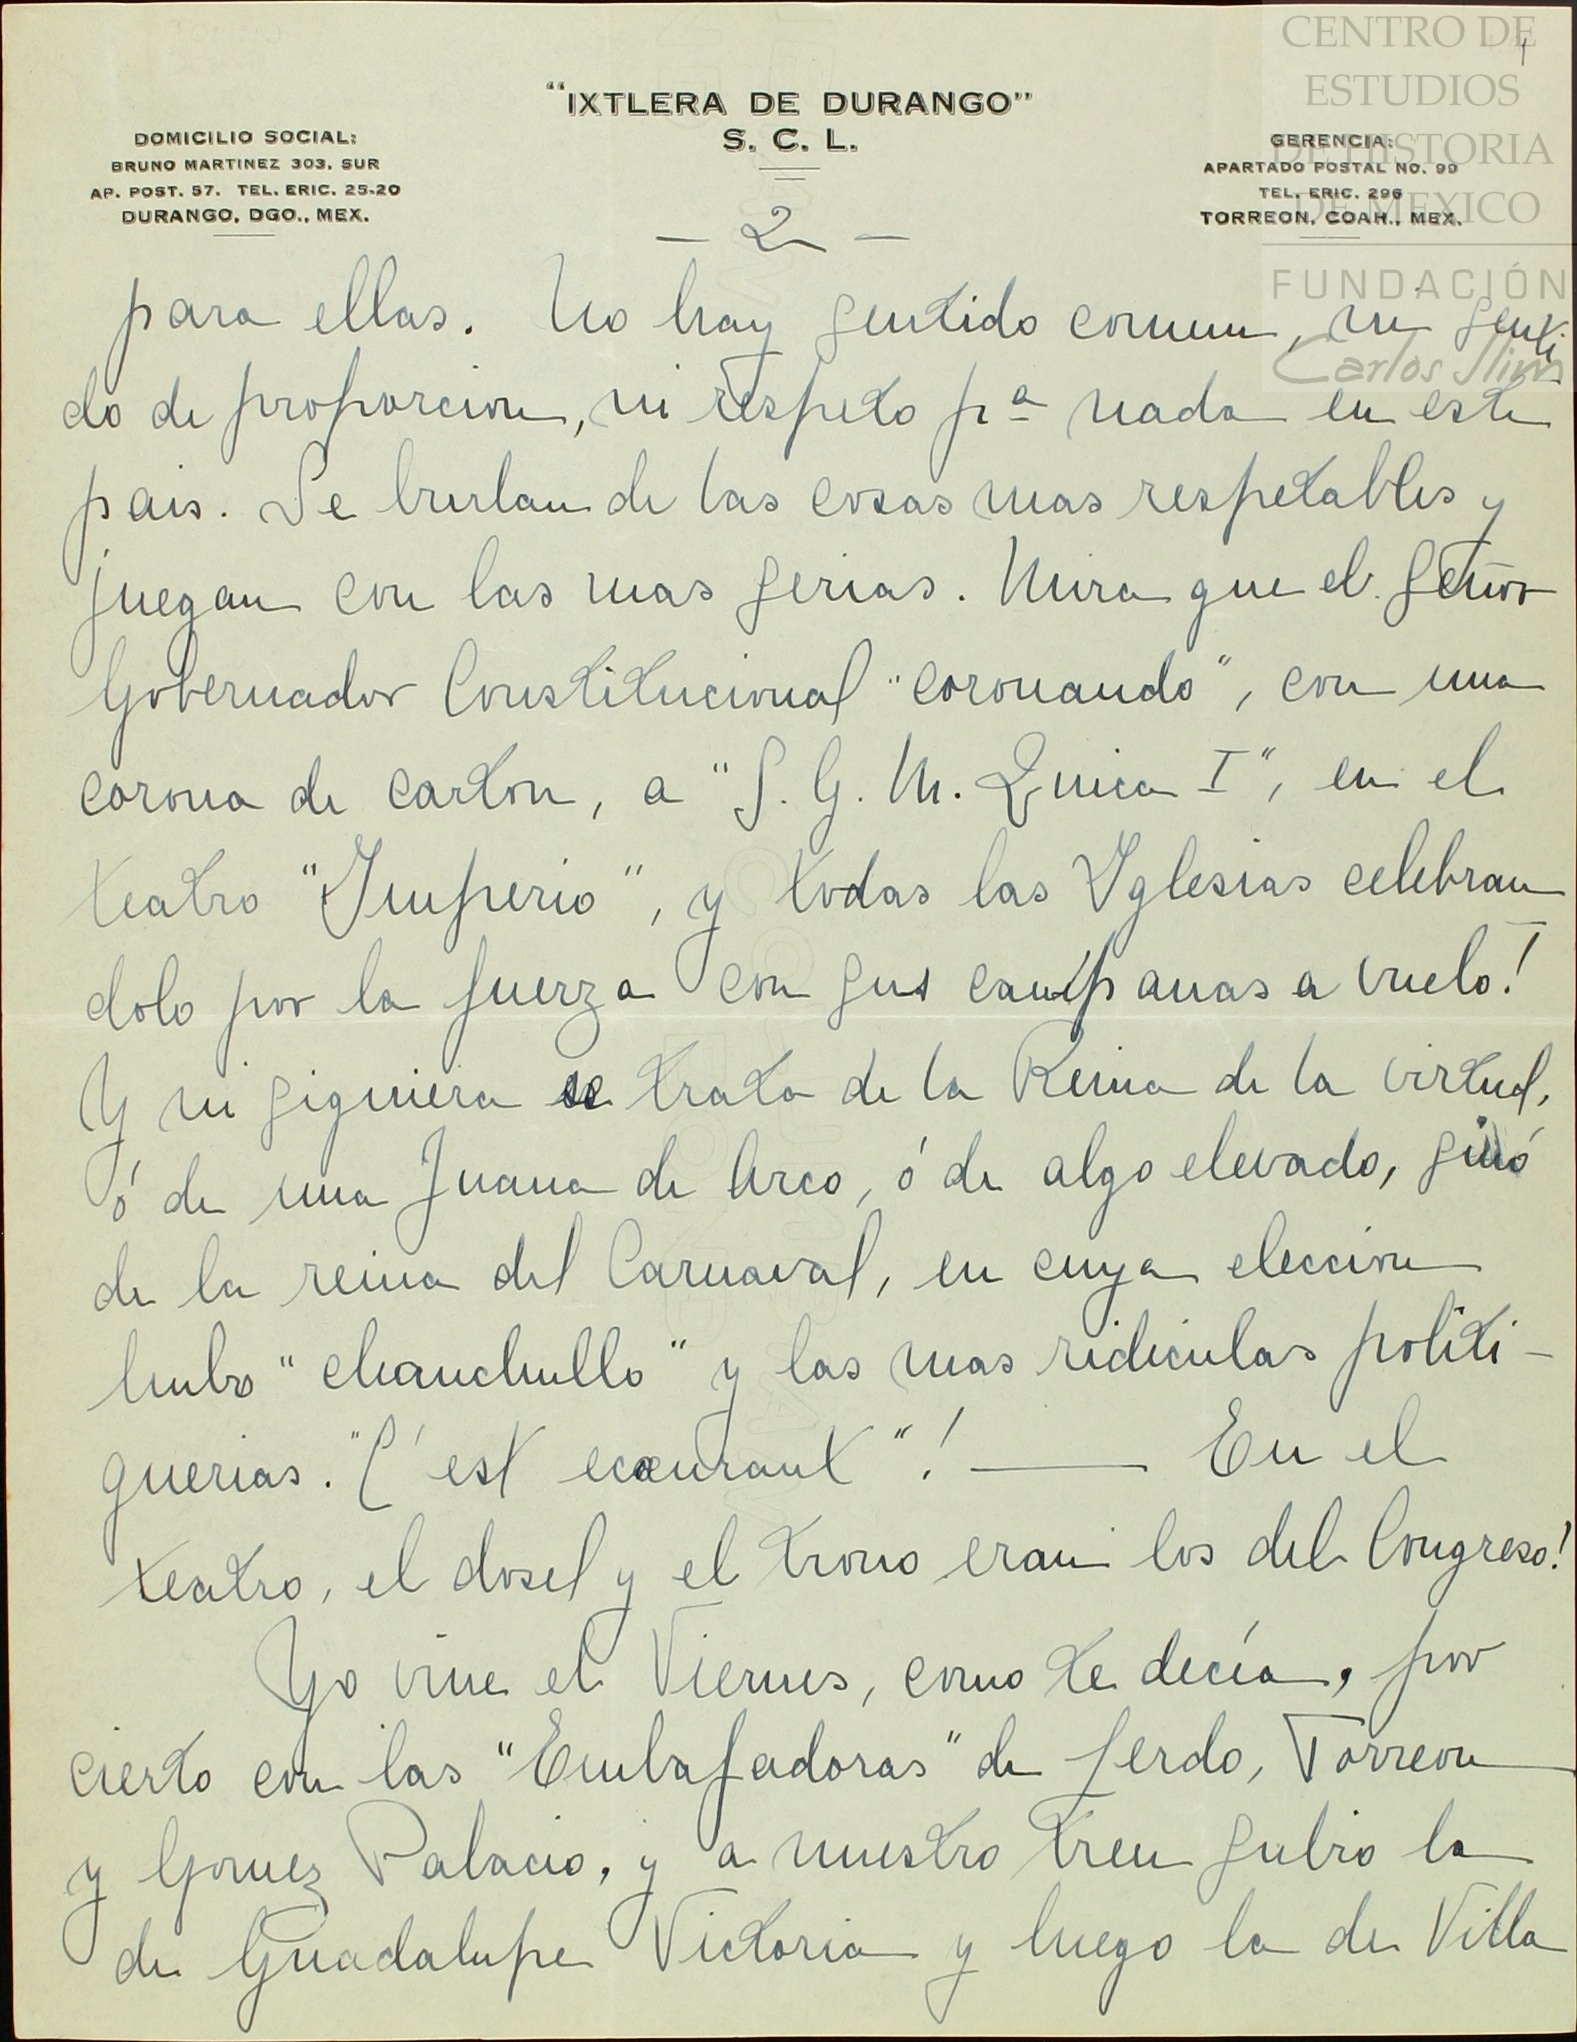 CENTRO DE
ESTUDIOS
DE HISTORIA
DE MEXICO
FUNDACIÓN
Carlos Slim
"IXTLERA DE DURANGO"
S. C. L.
DOMICILIO SOCIAL:
BRUNO MARTINEZ 303. SUR
AP. POST. 57. TEL. ERIC. 25-20
DURANGO, DGO., MEX.
GERENCIA:
APARTADO POSTAL NO. 99
TEL. ERIC. 296
TORREON, COAH., MEX.
- 2 -
para ellas. No hay sentido comun, ni senti
do de proporcion, ni respeto pª nada en este
pais. Se burlan de las cosas mas respetables y
juegan con las mas serias. Mira que el Señor
Gobernador Constitucional "coronando", con una
corona de carton, a "S. G. M. Quica I", en el
teatro "Imperio", y todas las Iglesias celebran
dolo por la fuerza con sus campanas a vuelo!
Y ni siquiera se trata de la Reina de la virtud,
ó de una Juana de Arco, ó de algo elevado, sinó
de la reina del Carnaval, en cuya eleccion
hubo "chanchullo" y las mas ridiculas politi-
querias. "C'est ecœurant"! — En el
teatro, el dosel y el trono eran los del Congreso!
Yo vine el Viernes, como te decía, por
cierto con las "Embajadoras" de Lerdo, Torreon
y Gomez Palacio, y a nuestro tren subio la
de Guadalupe Victoria y luego la de Villa